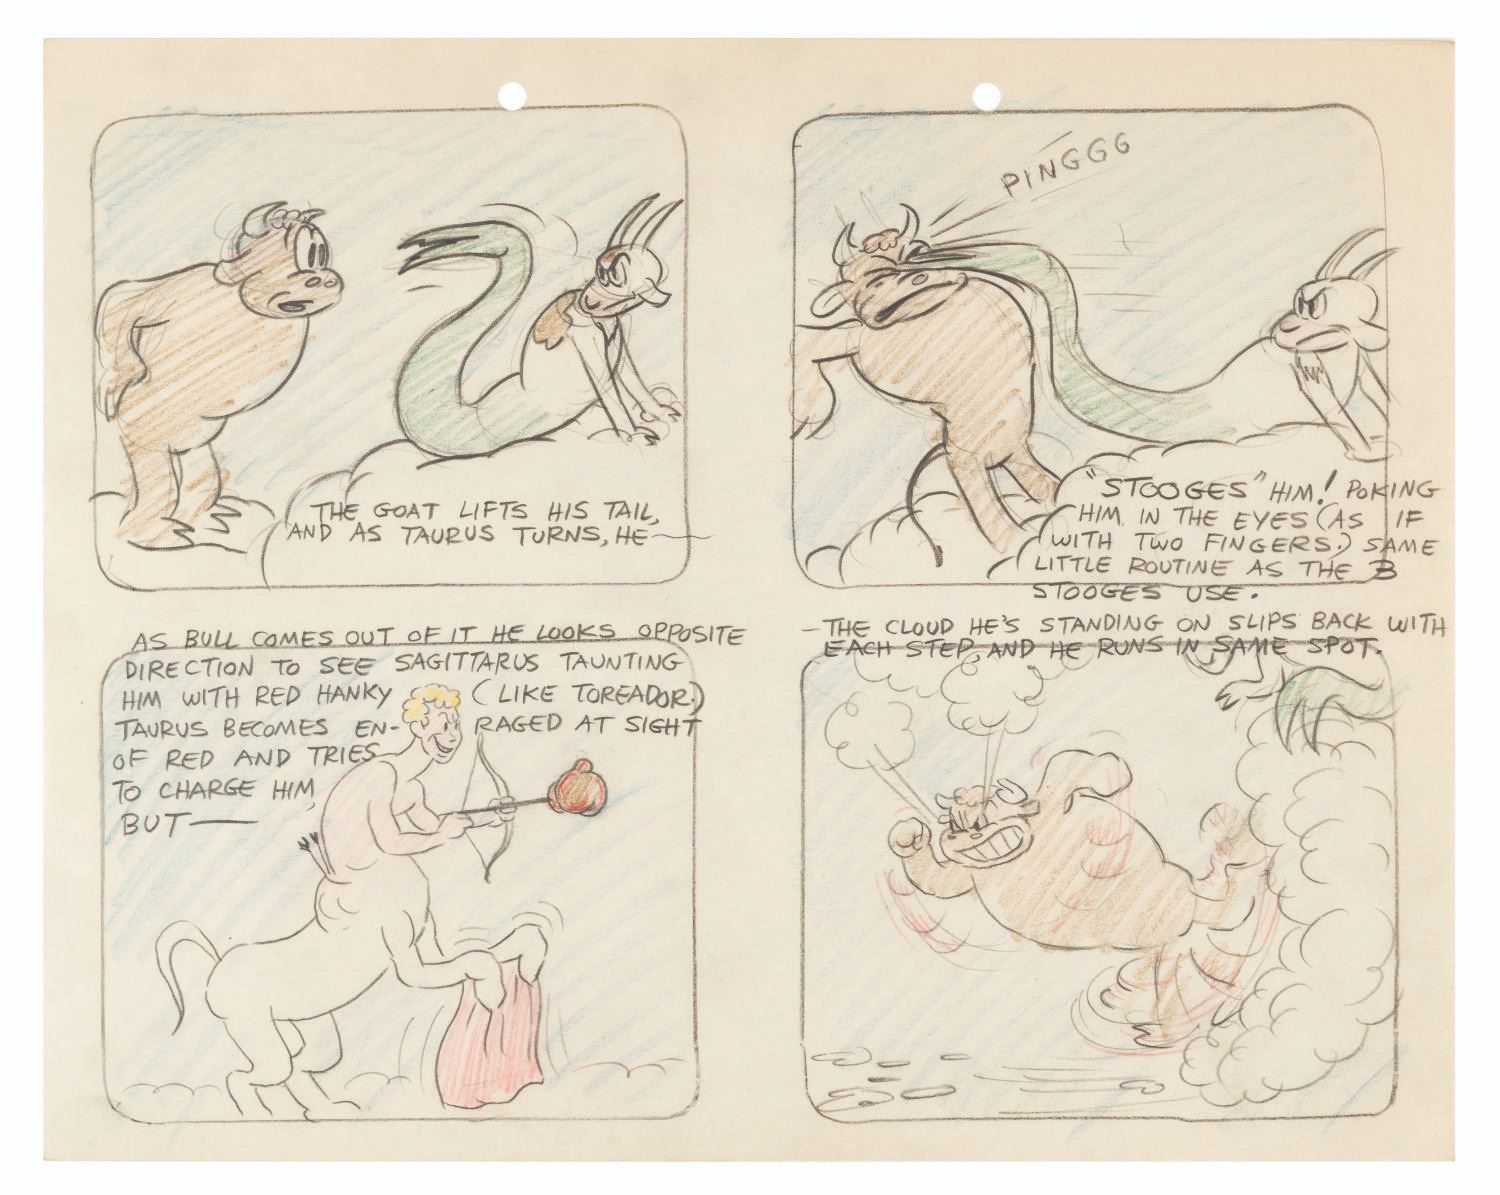 THE GOAT LIFTS HIS TAIL,
AND AS TAURUS TURNS, HE—
PINGGG
"STOOGES" HIM! POKING
HIM IN THE EYES (AS IF
WITH TWO FINGERS.) SAME
LITTLE ROUTINE AS THE 3
STOOGES USE.
AS BULL COMES OUT OF IT HE LOOKS OPPOSITE
DIRECTION TO SEE SAGITTARUS TAUNTING
HIM WITH RED HANKY (LIKE TOREADOR.)
TAURUS BECOMES EN- RAGED AT SIGHT
OF RED AND TRIES
TO CHARGE HIM,
BUT—
—THE CLOUD HE'S STANDING ON SLIPS BACK WITH
EACH STEP, AND HE RUNS IN SAME SPOT.